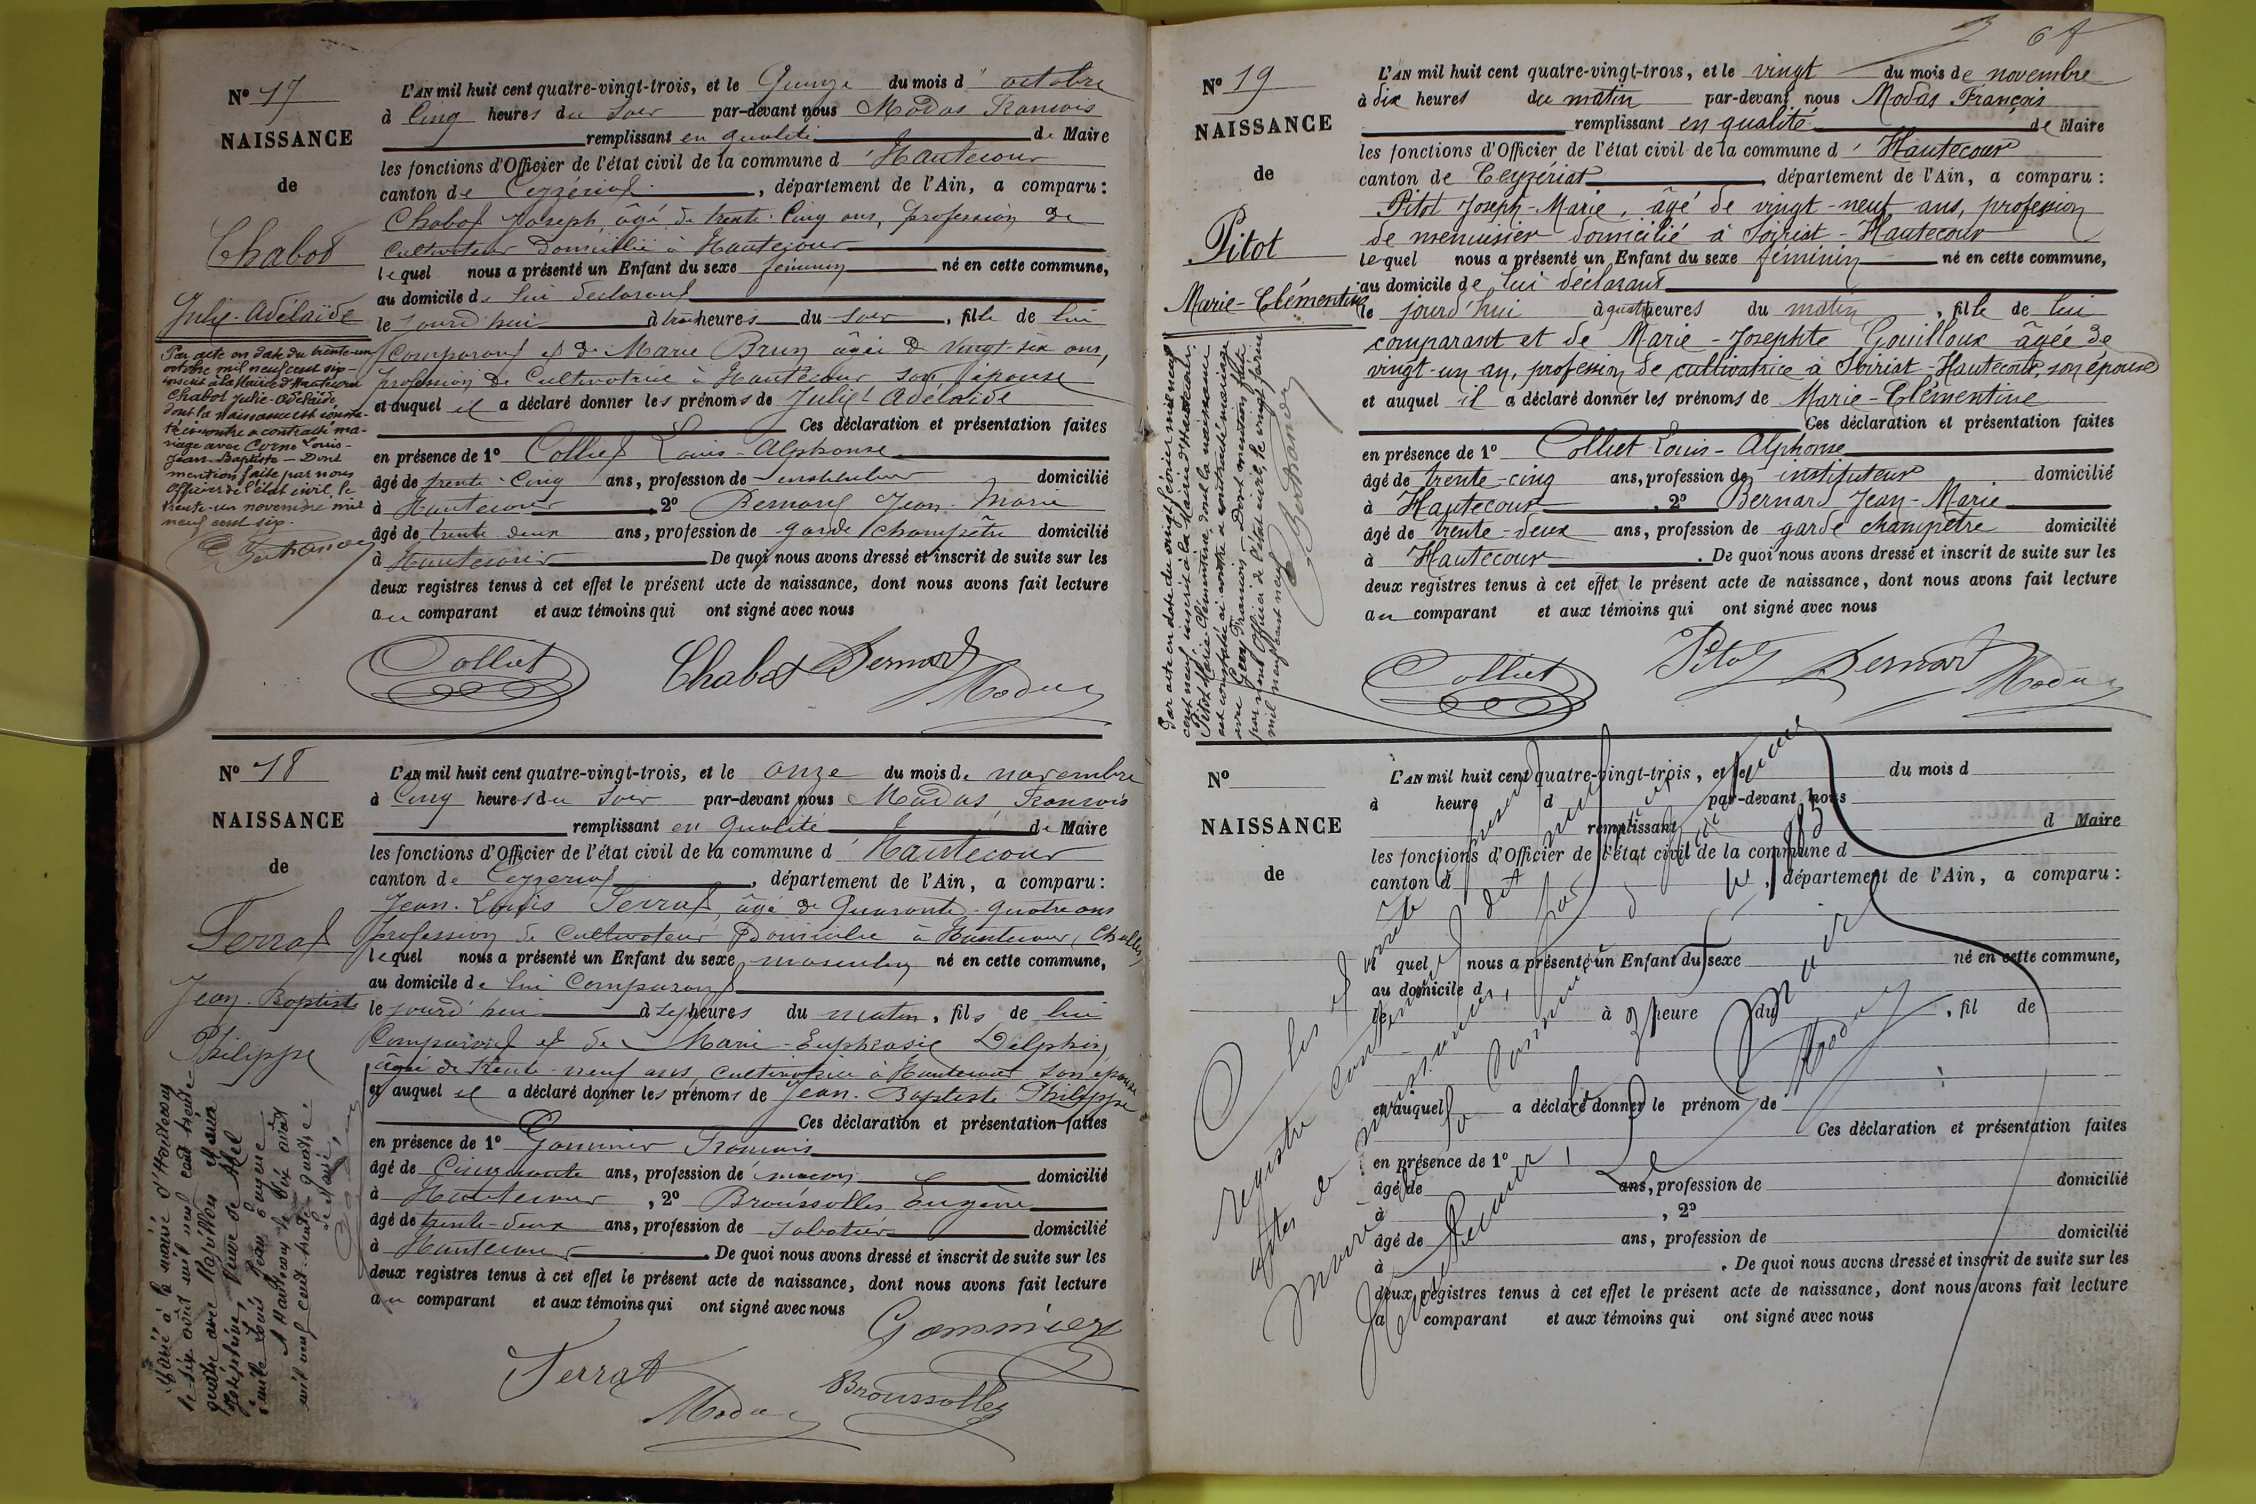 N° 17
NAISSANCE
de
Chabot
Julie-Adélaïde
Par acte en date du trente-un
octobre mil neuf cent sep-
inscrit à la Mairie d'Hautecour
Chabot Julie-Adélaïde
dont la naissance est consta-
tée ci-contre a contracté ma-
riage avec Corne Louis-
Jean-Baptiste — Dont
mention faite par nous
Officier de l'état civil, le
trente-un novembre mil
neuf cent sep.
L'AN mil huit cent quatre-vingt-trois, et le Quinze du mois d' octobre
à Cinq heures du Soir par-devant nous Modas Francois
remplissant en qualité de Maire
les fonctions d'Officier de l'état civil de la commune d' Hautecour
canton de Ceyzériat, département de l'Ain, a comparu :
Chabot Joseph, âgé de trente-Cinq ans, profession de
Cultivateur Domicilié à Hautecour
lequel nous a présenté un Enfant du sexe féminin né en cette commune,
au domicile de lui déclarant
le jourd'hui à trois heures du soir, fille de lui
Comparant et de Marie Brun âgée de vingt-six ans,
profession de Cultivatrice à Hautecour son épouse
et auquel il a déclaré donner les prénoms de Julie-Adélaïde
Ces déclaration et présentation faites
en présence de 1° Colliet Louis-Alphonse
âgé de trente-Cinq ans, profession de instituteur domicilié
à Hautecour, 2° Bernard Jean-Marie
âgé de trente deux ans, profession de garde Champêtre domicilié
à Hautecour. De quoi nous avons dressé et inscrit de suite sur les
deux registres tenus à cet effet le présent acte de naissance, dont nous avons fait lecture
au comparant et aux témoins qui ont signé avec nous
Colliet Chabot Bernard
Modas
N° 18
NAISSANCE
de
Ferrat
Jean-Baptiste
Philippe
Marié à la mairie d'Hautecour
le six août mil neuf cent trente-
quatre avec
Joséphine, Veuve de
L'AN mil huit cent quatre-vingt-trois, et le onze du mois de novembre
à Cinq heures du Soir par-devant nous Modas Francois
remplissant en qualité de Maire
les fonctions d'Officier de l'état civil de la commune d' Hautecour
canton de Ceyzeriat, département de l'Ain, a comparu :
Jean-Louis Ferrat, âgé de Quarante-quatre ans
profession de Cultivateur Domicilié à Hautecour (Challes)
lequel nous a présenté un Enfant du sexe masculin né en cette commune,
au domicile de lui Comparant
le jourd'hui à sept heures du matin, fils de lui
Comparant et de Marie-Euphrasie Delphin,
âgée de trente-neuf ans, Cultivatrice à Hautecour son épouse
et auquel il a déclaré donner les prénoms de Jean-Baptiste Philippe
Ces déclaration et présentation faites
en présence de 1° Gommier Francois
âgé de Cinquante ans, profession de maçon domicilié
à Hautecour, 2° Broussolles Eugène
âgé de trente-deux ans, profession de sabotier domicilié
à Hautecour. De quoi nous avons dressé et inscrit de suite sur les
deux registres tenus à cet effet le présent acte de naissance, dont nous avons fait lecture
au comparant et aux témoins qui ont signé avec nous
Gommier
Ferrat
Modas Broussolles
N° 19
NAISSANCE
de
Pitot
Marie-Clémentine
Par acte en date du vingt février mil neuf
cent neuf, inscrit à la Mairie d'Hautecour,
Pitot Marie-Clémentine, dont la naissance
est constatée ci-contre a contracté mariage
avec Gery François — Dont mention faite
par nous Officier de l'état civil, le vingt février
mil neuf cent neuf
Bertrand
L'AN mil huit cent quatre-vingt-trois, et le vingt du mois de novembre
à dix heures du matin par-devant nous Modas François
remplissant en qualité de Maire
les fonctions d'Officier de l'état civil de la commune d' Hautecour
canton de Ceyzériat, département de l'Ain, a comparu :
Pitot Joseph-Marie, âgé de vingt-neuf ans, profession
de menuisier domicilié à Soiriat-Hautecour
lequel nous a présenté un Enfant du sexe féminin né en cette commune,
au domicile de lui déclarant
le jourd'hui à quatre heures du matin, fille de lui
comparant et de Marie-Josephte Gouilloux âgée de
vingt-un an, profession de cultivatrice à Soiriat-Hautecour, son épouse
et auquel il a déclaré donner les prénoms de Marie-Clémentine
Ces déclaration et présentation faites
en présence de 1° Colliet Louis-Alphonse
âgé de trente-cinq ans, profession de instituteur domicilié
à Hautecour, 2° Bernard Jean-Marie
âgé de trente-deux ans, profession de garde champêtre domicilié
à Hautecour. De quoi nous avons dressé et inscrit de suite sur les
deux registres tenus à cet effet le présent acte de naissance, dont nous avons fait lecture
au comparant et aux témoins qui ont signé avec nous
Colliet Pitot Bernard Modas
N°
NAISSANCE
de
L'AN mil huit cent quatre-vingt-trois, et le du mois d
à heure d par-devant nous
remplissant d Maire
les fonctions d'Officier de l'état civil de la commune d
canton d, département de l'Ain, a comparu :
l quel nous a présenté un Enfant du sexe né en cette commune,
au domicile d
le à heure du, fil de
et auquel a déclaré donner le prénom de
Ces déclaration et présentation faites
en présence de 1°
âgé de ans, profession de domicilié
à, 2°
âgé de ans, profession de domicilié
à. De quoi nous avons dressé et inscrit de suite sur les
deux registres tenus à cet effet le présent acte de naissance, dont nous avons fait lecture
a comparant et aux témoins qui ont signé avec nous
Clos et arrêté le présent
registre contenant dix neuf
actes de naissances, par nous
Le Maire
Modas